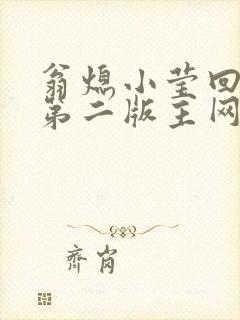 翁熄小莹回
第二版主网
齊肖